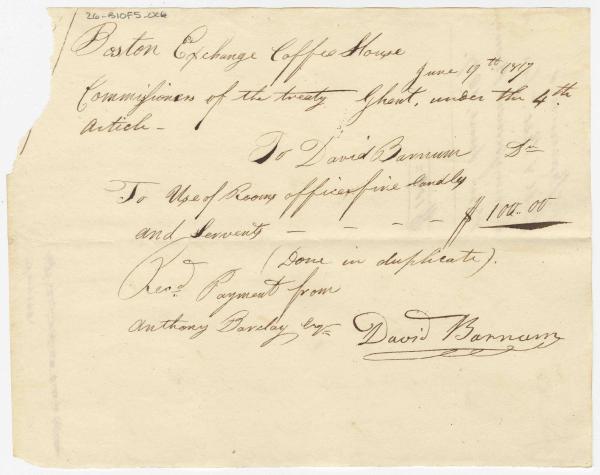 26-B10F5-006
Boston Exchange Coffee House
June 17th 1817
Commissioners of the treaty Ghent, under the 4th
article -
To David Barnum Dr
To Use of Rooms offices fire Candles
and Servents - - - - $ 100.00
(Done in duplicate).
Recd. Payment from
Anthony Barclay Esqr
David Barnum